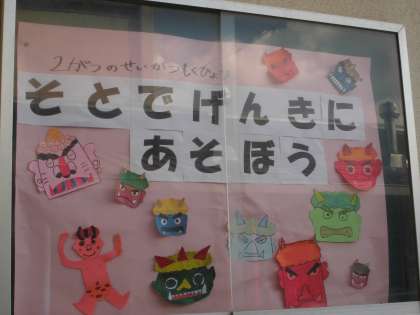 ２がつのせいかつもくひょう
そとでげんきに
あそぼう